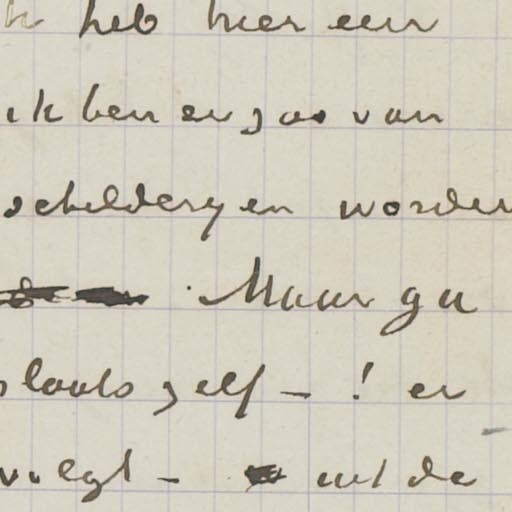 ik heb hier een
ik ben er zoo van
schilderyen worden
Maar ga
plaats zelf - ! er
volgt - uit de